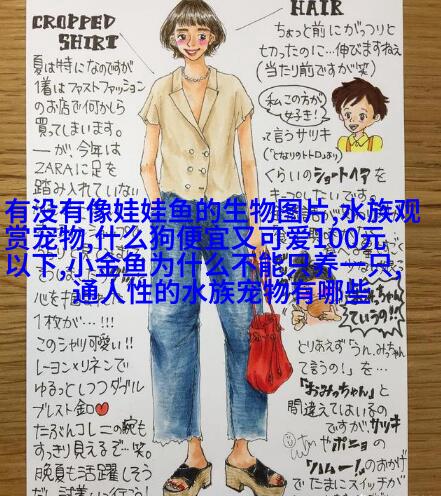 CROPPED
SHIRT
夏は特になのですが
1着はファストファッション
のお店で何かしら
買ってしまいます。
ーが、今年は
ZARAに足を
踏み入れていない
有没有像娃娃鱼的生物图片,水族观
赏宠物,什么狗便宜又可爱100元
以下,小金鱼为什么不能只养一只,
通人性的水族宠物有哪些
1枚が…!!!
このシャツ可愛い!!
レーヨン×リネンで
ゆるっとしつつダブル
ブレスト釦♥
たぶんコレニの腕も
すっきり見えるぞ…笑。
晩夏も活躍しそう
HAIR
ちょっと前にがっつりと
切ったのに…伸びますねぇ
(当たり前ですが笑)
私この方が
好き!
って言うサツキ
(「となりのトトロ」より)
くらいのショートヘアを
ていうの!!
とりあえず「うん、みちゃん
て言うの!」を…
「おみっちゃん」と
間違えてはいるの
ですが、サツキ
やポニョの
「ハムー!」のおかげ
でたまにスイッチが